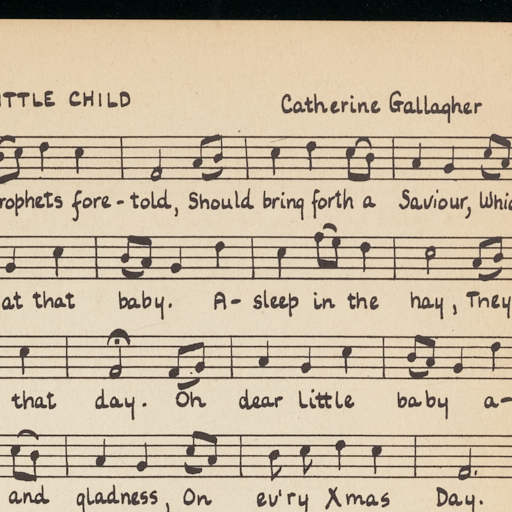 ITTLE CHILD
Catherine Gallagher
rophets fore-told, Should bring forth a Saviour, Whic
at that baby. A-sleep in the hay, They
that day. Oh dear little baby a-
and gladness, On ev'ry Xmas Day.